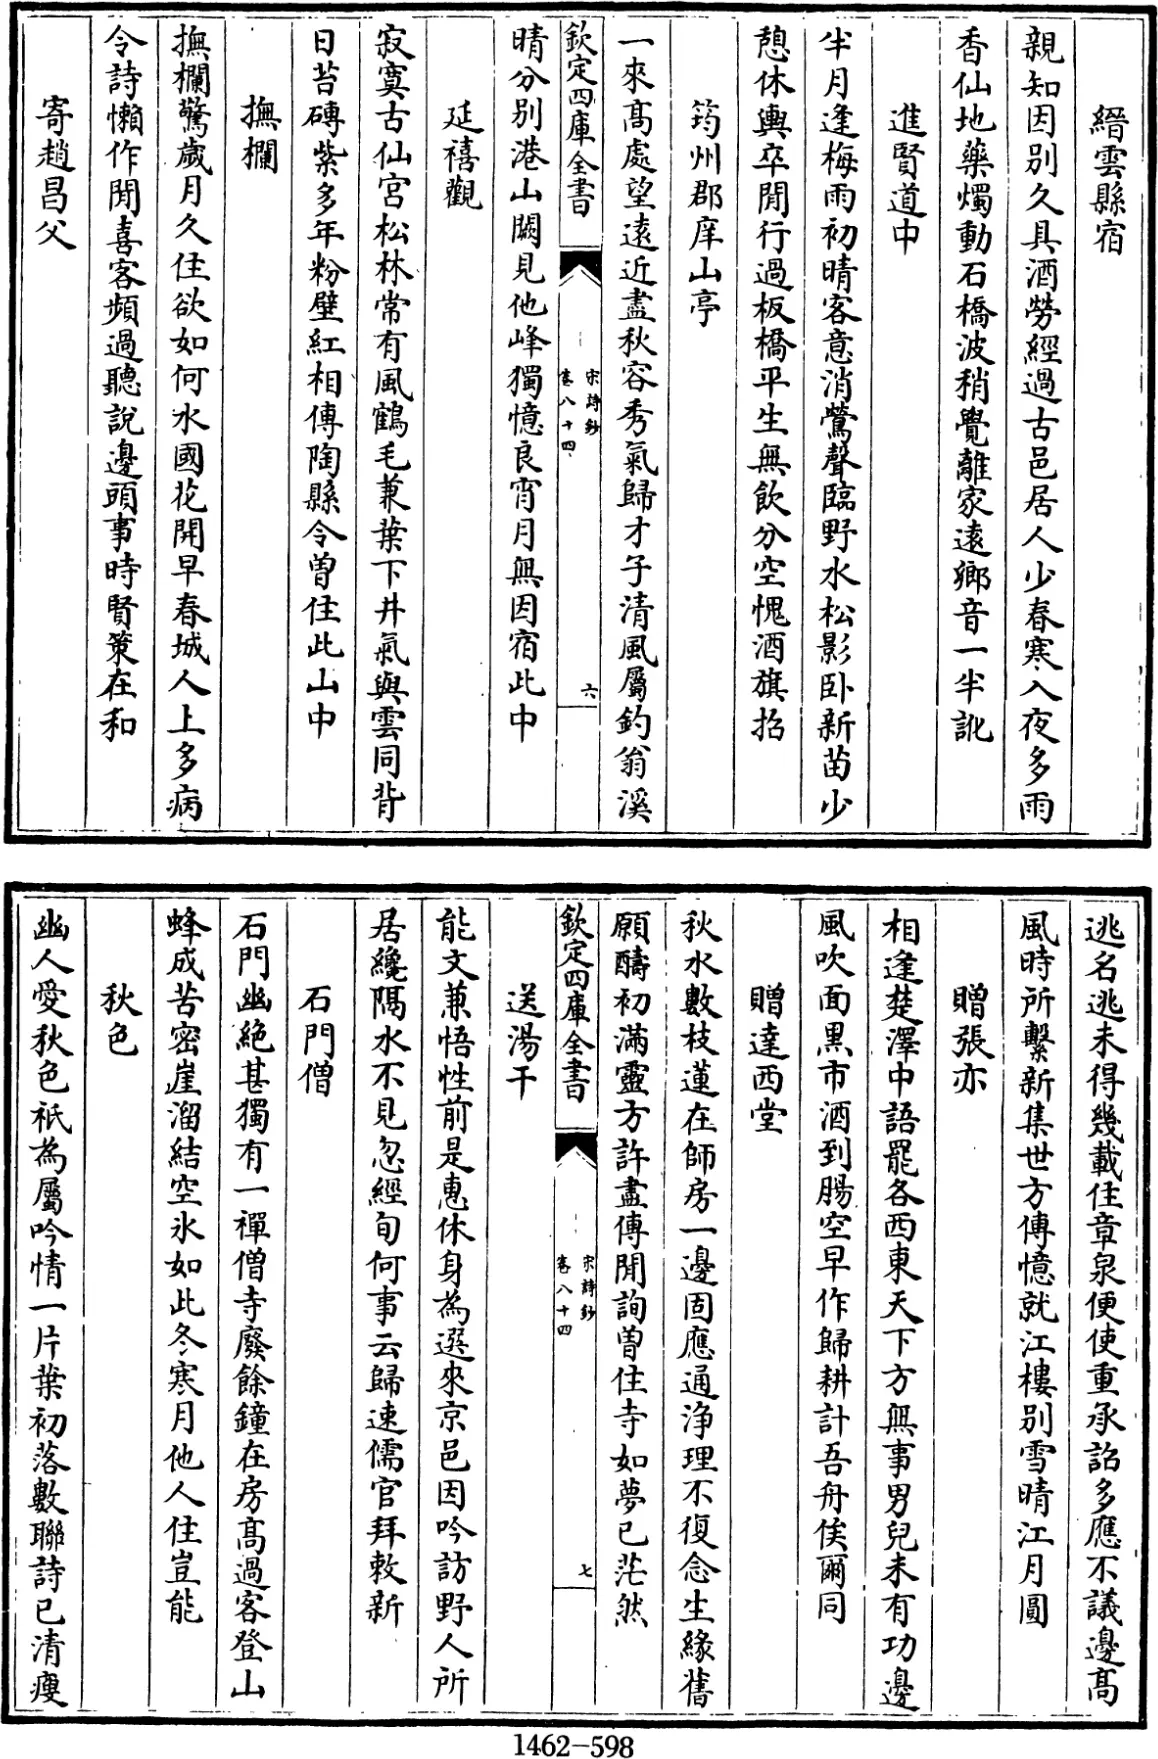 縉雲縣宿
親知因別久具酒勞經過古邑居人少春寒入夜多雨
香仙地藥燭動石橋波稍覺離家遠鄉音一半訛
進賢道中
半月逢梅雨初晴客意消鶯聲臨野水松影卧新苗少
憩休輿卒閒行過板橋平生無飲分空愧酒旗招
筠州郡庠山亭
一來髙處望遠近盡秋容秀氣歸才子清風屬釣翁溪
欽定四庫全書
宋詩鈔
卷八十四
六
晴分別港山闕見他峰獨憶良宵月無因宿此中
延禧觀
寂寞古仙宮松林常有風鶴毛兼葉下井氣與雲同背
日苔磚紫多年粉壁紅相傳陶縣令曽住此山中
撫欄
撫欄驚歲月久住欲如何水國花開早春城人上多病
令詩懶作閒喜客頻過聽說邊頭事時賢策在和
寄趙昌父
逃名逃未得幾載住章泉便使重承詔多應不議邊髙
風時所繫新集世方傳憶就江樓別雪晴江月圓
贈張亦
相逢楚澤中語罷各西東天下方無事男兒未有功邊
風吹面黒市酒到腸空早作歸耕計吾舟俟爾同
贈達西堂
秋水數枝蓮在師房一邊固應通浄理不復念生緣舊
願醻初滿靈方許盡傳閒詢曽住寺如夢已茫然
欽定四庫全書
宋詩鈔
卷八十四
七
送湯干
能文兼悟性前是惠休身為選來京邑因吟訪野人所
居纔隔水不見忽經旬何事云歸速儒官拜敕新
石門僧
石門幽絶甚獨有一禪僧寺廢餘鐘在房髙過客登山
蜂成苦密崖溜結空氷如此冬寒月他人住豈能
秋色
幽人愛秋色祇為屬吟情一片葉初落數聯詩已清瘦
1462-598